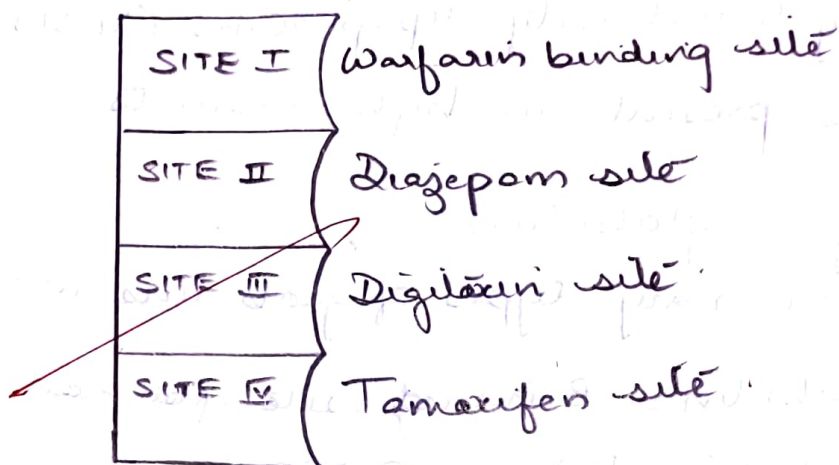 SITE I Warfarin binding site
SITE II Diazepam site
SITE III Digitoxin site.
SITE IV Tamoxifen site.